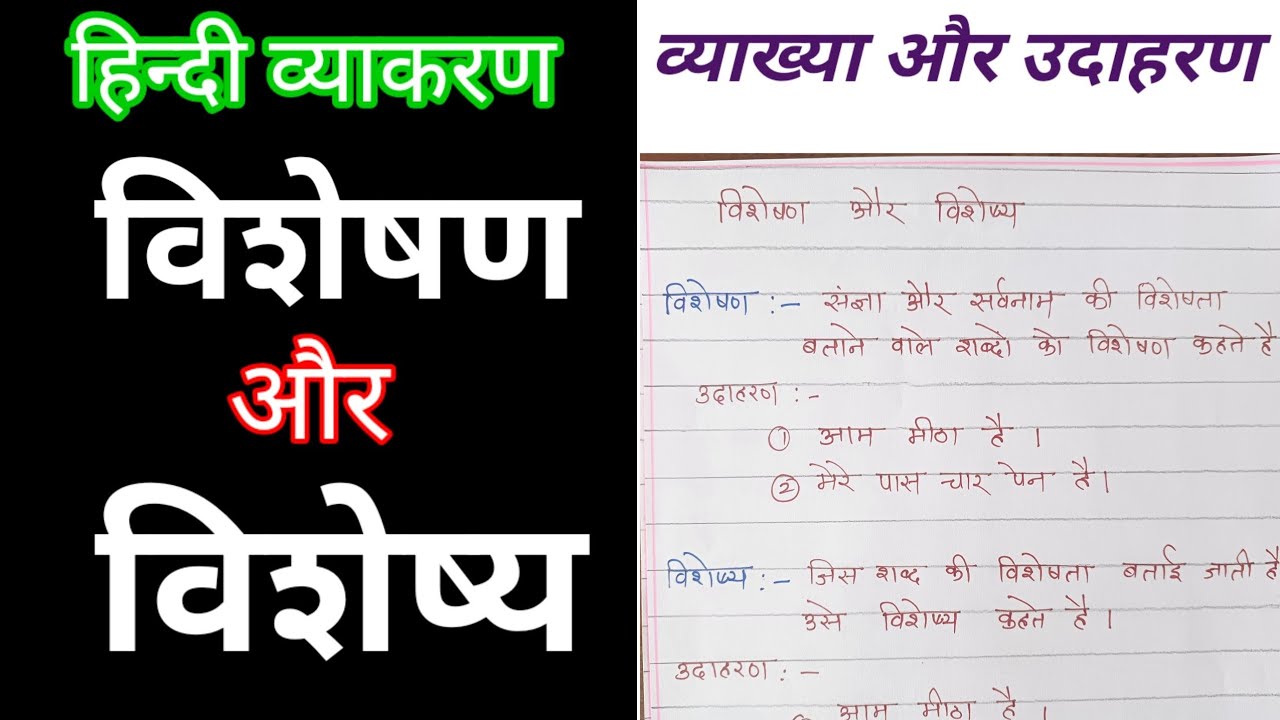 हिन्दी व्याकरण
विशेषण
और
विशेष्य
व्याख्या और उदाहरण
विशेषण और विशेष्य
विशेषण :- संज्ञा और सर्वनाम की विशेषता
बताने वाले शब्दों को विशेषण कहते है
उदाहरण :-
① आम मीठा है ।
② मेरे पास चार पेन है।
विशेष्य :- जिस शब्द की विशेषता बताई जाती है
उसे विशेष्य कहते है ।
उदाहरण :-
आम मीठा है ।